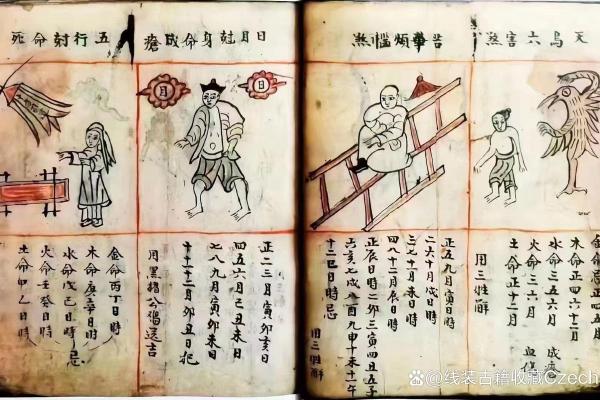 天烏六害煞
煩惱煞
木命正四六十二月
水命三五六月
火命三六月
土命正十二月
成瘡
血
用三牲解
正五九月寅日時
二六十月戌日時
三七十月未日時
四八十二月辰日時
正辰日時二卯三寅四丑五子
六亥七戌八酉九申十未十一午
十二巳日時忌
用三牲解
日月尅身命成瘡
日
月
正二三月寅卯亥日
四五六月己丑未日
七八九月寅卯未日
十十一十二月卯丑日犯
五行射命死
金命丙丁日時
木命庚辛日時
水命戊己日時
忌
火命壬癸日時
土命甲乙日時
@线装古籍收藏Czech